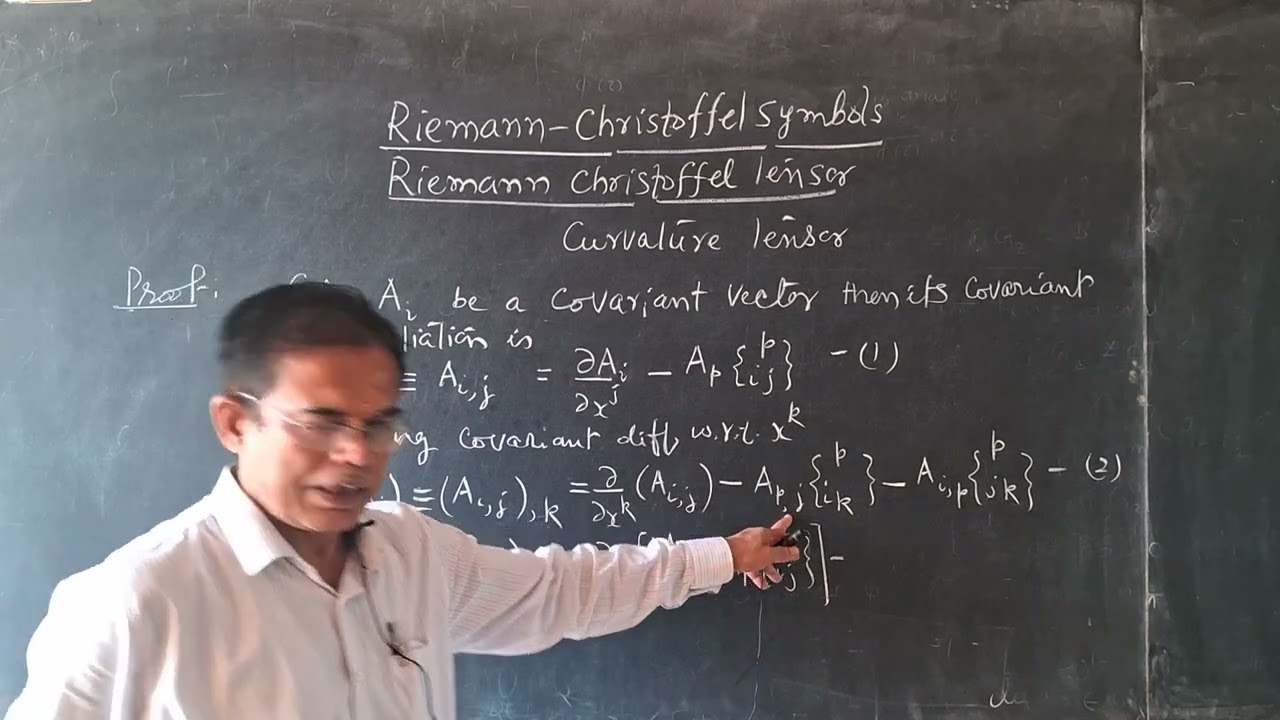 Riemann-Christoffel Symbols
Riemann Christoffel tensor
Curvature tensor
Proof: A_i be a covariant vector then its covariant
is
≡ A_{i,j} = ∂A_i/∂x^j - A_p {^p_{ij}} - (1)
covariant diff. w.r.t. x^k
) ≡ (A_{i,j}),_k = ∂/∂x^k (A_{i,j}) - A_{p,j} {^p_{ik}} - A_{i,p} {^p_{jk}} - (2)
}] -